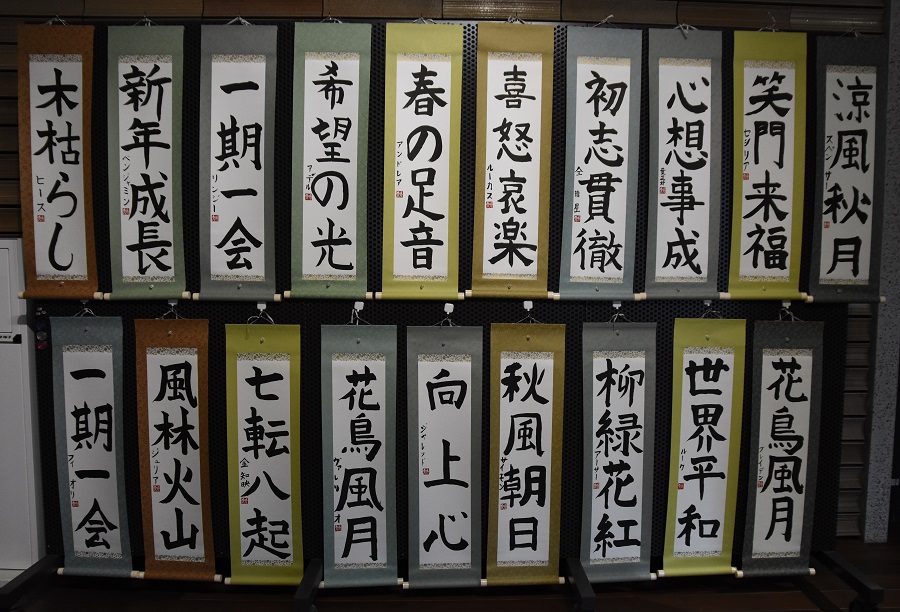 木枯らし
ヒース
新年成長
ベンジャミン
一期一会
リンジー
希望の光
アデル
春の足音
アンドレア
喜怒哀楽
ルーカス
初志貫徹
心想事成
笑門来福
セシリア
涼風秋月
スペンサー
一期一会
フィオリ
風林火山
ジュリア
七転八起
金知映
花鳥風月
向上心
ジャレッド
秋風朝日
サイモン
柳緑花紅
アーサー
世界平和
ルーク
花鳥風月
ブレイデン